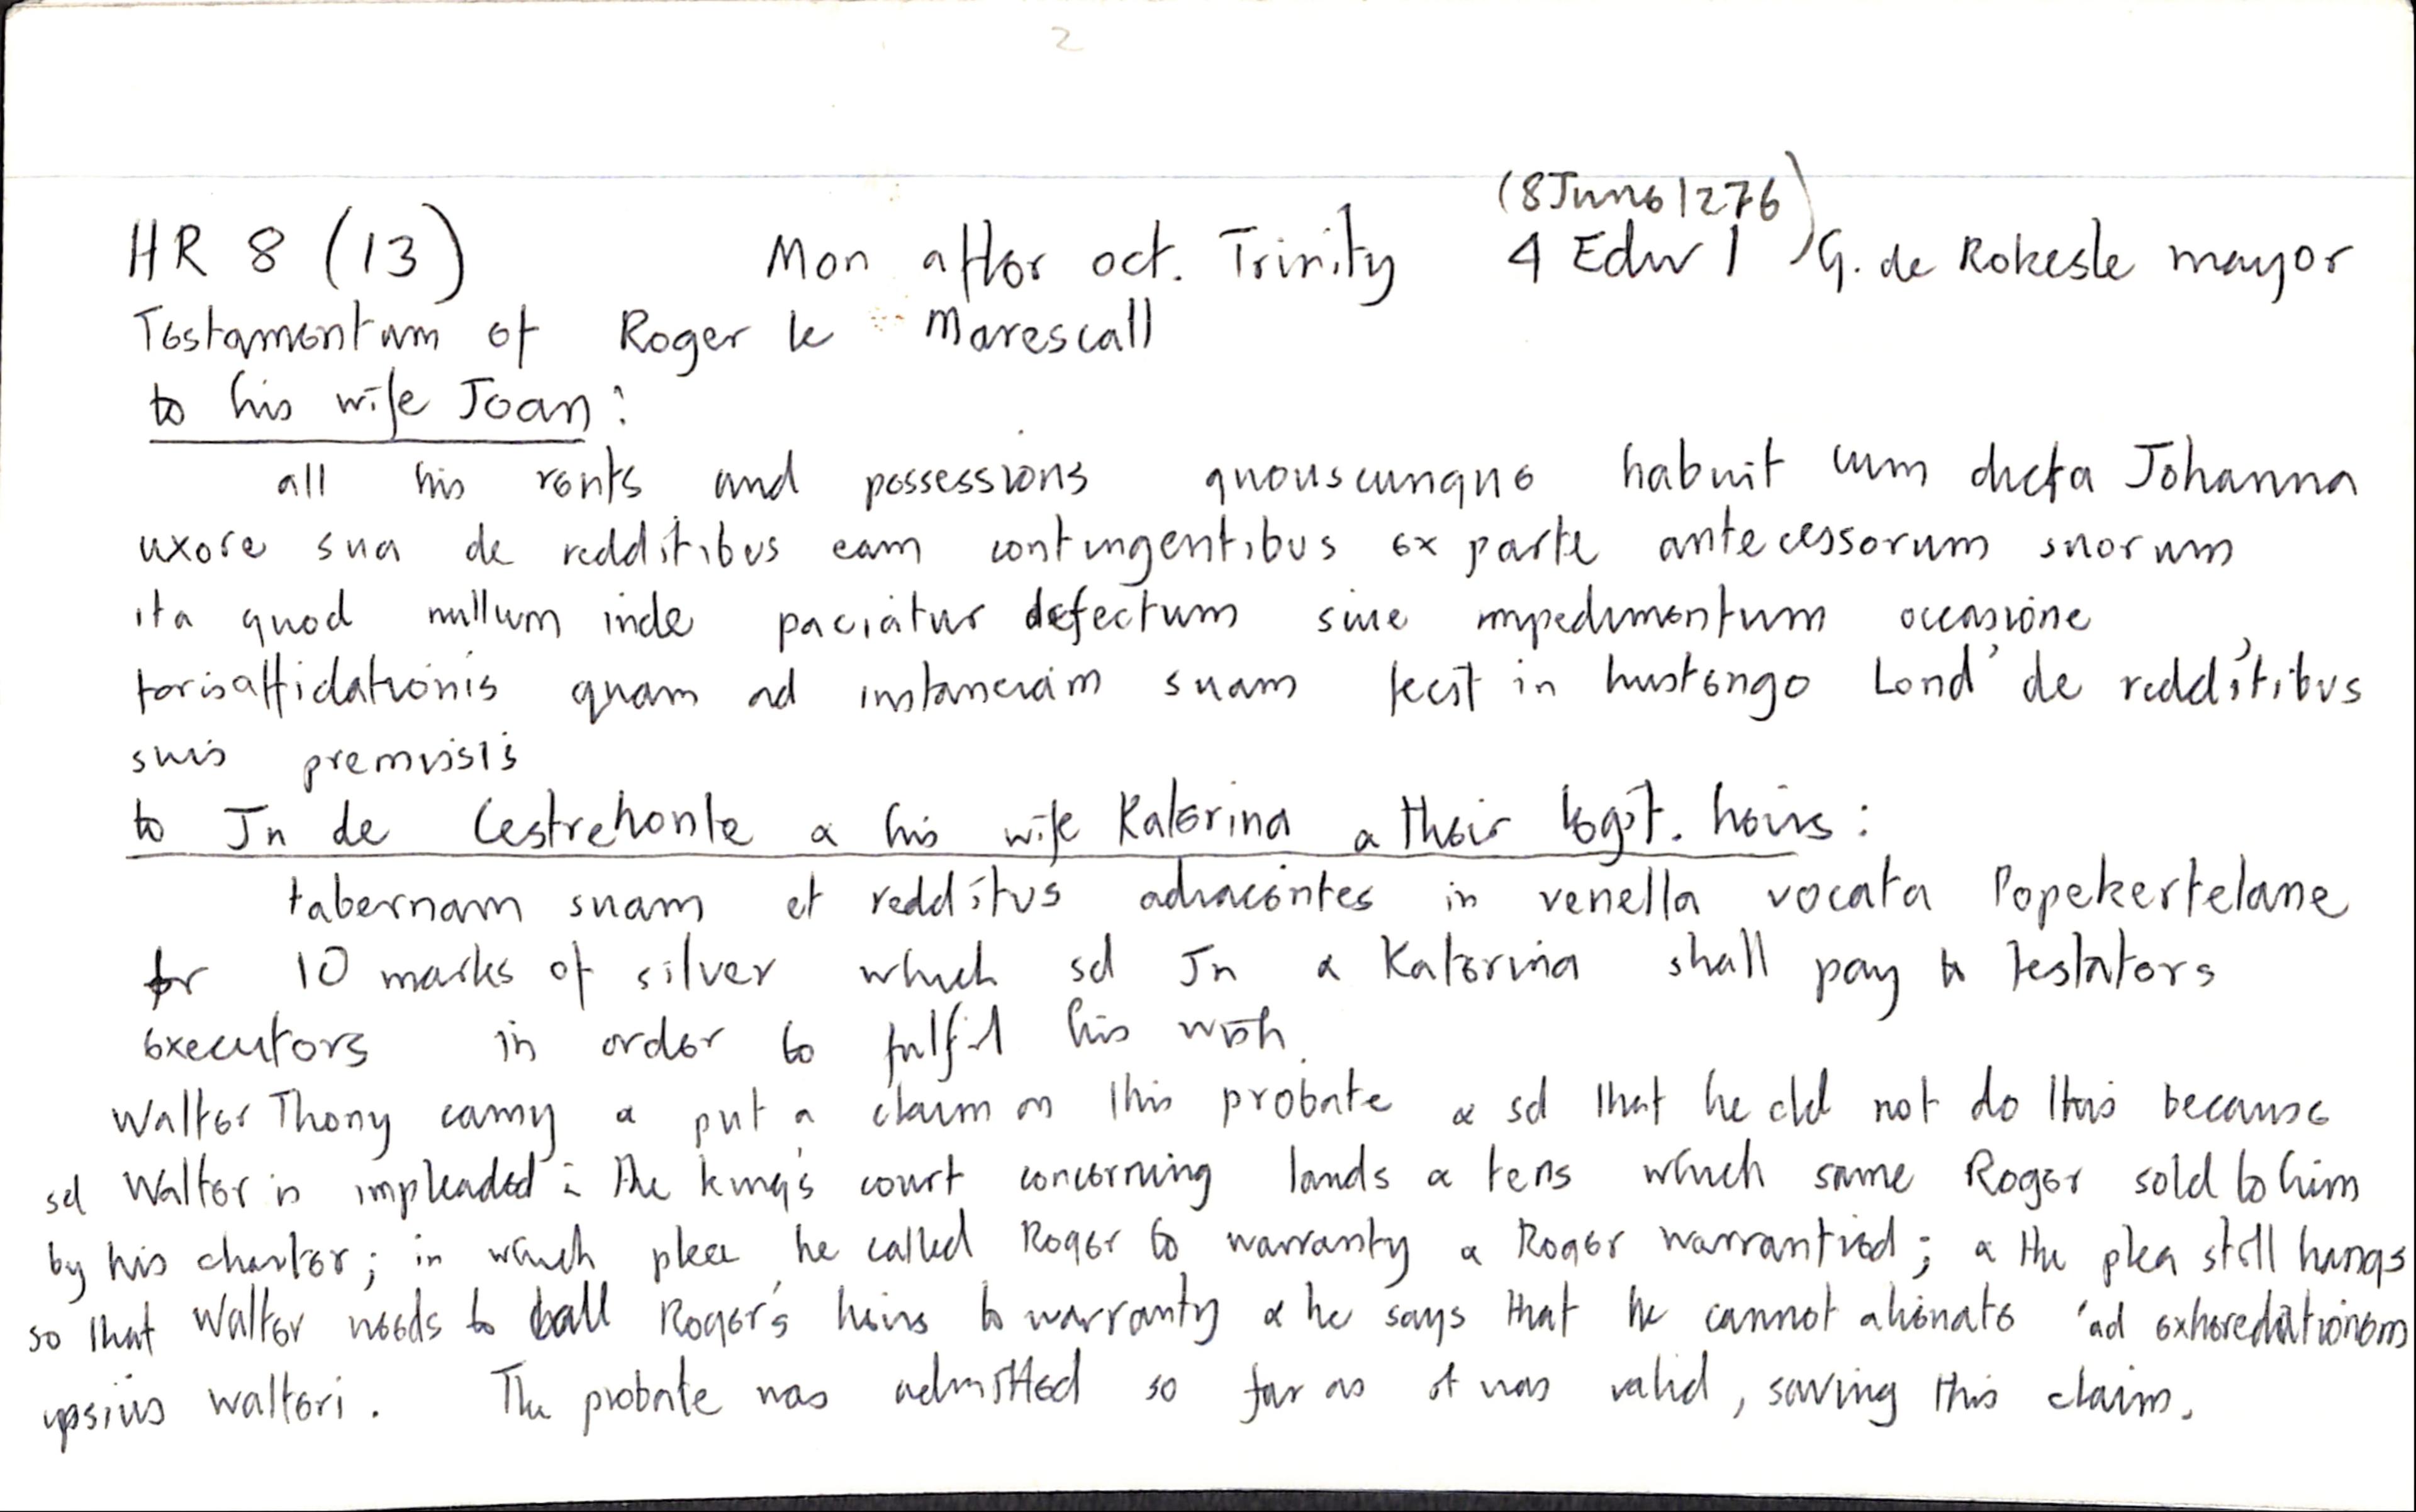 2
(8 June 1276)
HR 8 (13) Mon after oct. Trinity 4 Edw 1 G. de Rokesle mayor
Testamentum of Roger le Marescall
to his wife Joan:
all his rents and possessions quouscunque habuit cum dicta Johanna
uxore sua de redditibus eam contingentibus ex parte antecessorum suorum
ita quod nullum inde paciatur defectum sive impedimentum occasione
forisaffidationis quam ad instanciam suam fecit in hustengo Lond' de redditibus
suis premissis
to Jn de Cestrehonte & his wife Katerina & their legit. heirs:
tabernam suam et redditus adiacentes in venella vocata Popekertelane
for 10 marks of silver which sd Jn & Katerina shall pay to testators
executors in order to fulfil his wish.
Walter Thony camy & put a claim on this probate & sd that he cld not do this because
sd Walter is impleaded in the king's court concerning lands & tens which same Roger sold to him
by his charter; in which plea he called Roger to warranty & Roger warrantied; & the plea still hangs
so that Walter needs to call Roger's heirs to warranty & he says that he cannot alienate 'ad exheredationem
ypsius Walteri. The probate was admitted so far as it was valid, saving this claim.